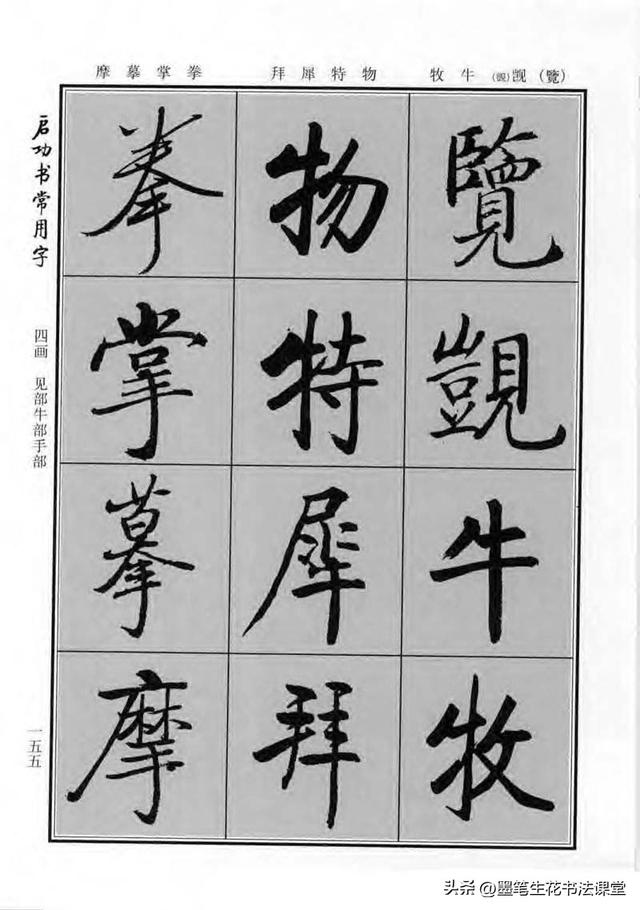 摩摹掌拳 拜犀特物 牧牛(覬)觊(覽)
启功书常用字
四画 见部牛部手部
一五五
覽
覬
牛
牧
物
特
犀
拜
拳
掌
摹
摩
头条@墨笔生花书法课堂